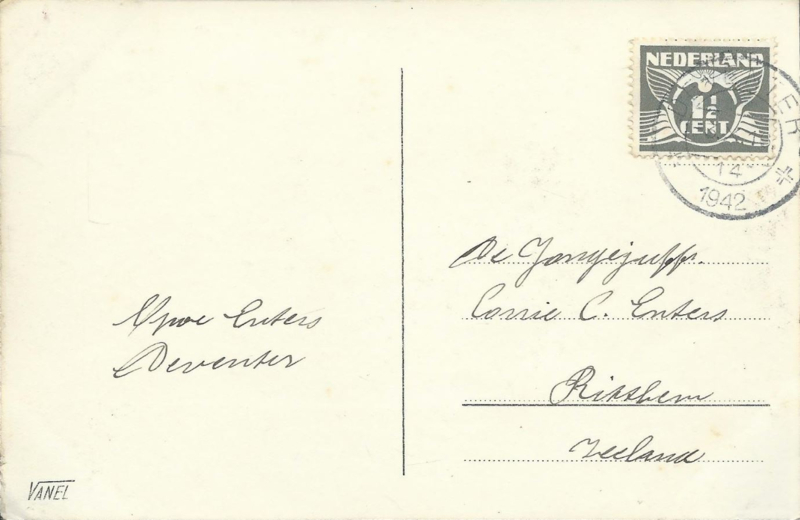 NEDERLAND
1½
CENT
14
1942
Enters
Deventer
De Jongejuffr.
Corrie C. Enters
Ritthem
Zeeland
VANEL